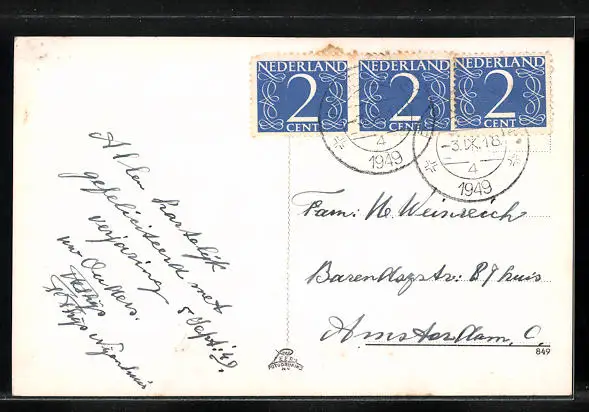 NEDERLAND NEDERLAND NEDERLAND
2 2 2
CENT CENT CENT
4
1949
-3.IX.18
4
1949
Allen hartelijk
gefeliciteerd met
verjaring 5 Sept: 49.
uw Ouders.
Fam: Weinreich
Barendszstr: 87 huis
Amsterdam. C.
849